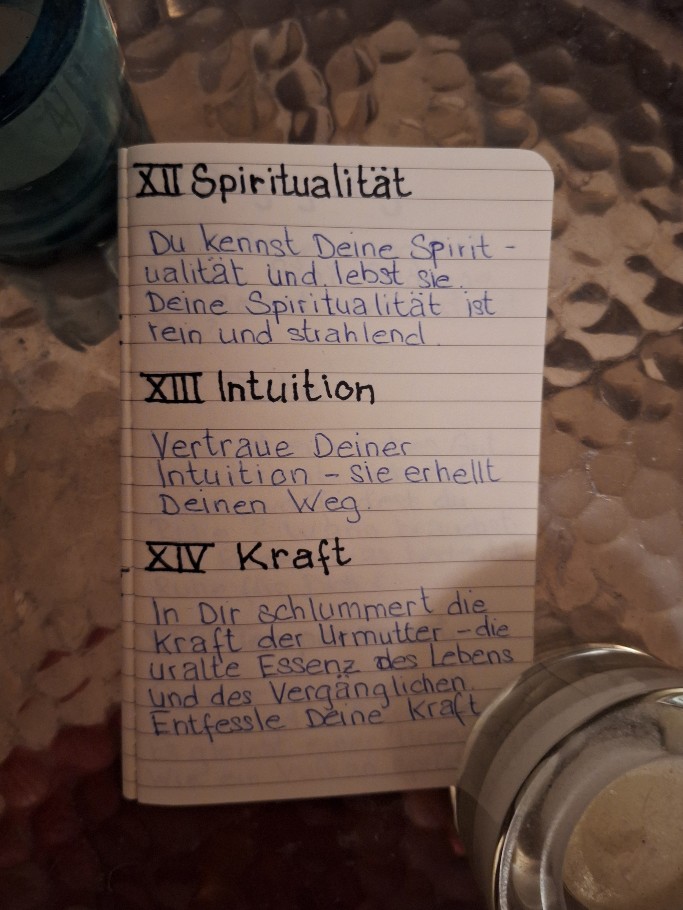 XII Spiritualität
Du kennst Deine Spirit-
ualität und lebst sie.
Deine Spiritualität ist
rein und strahlend.
XIII Intuition
Vertraue Deiner
Intuition – sie erhellt
Deinen Weg.
XIV Kraft
In Dir schlummert die
Kraft der Urmutter – die
uralte Essenz des Lebens
und des Vergänglichen.
Entfessle Deine Kraft